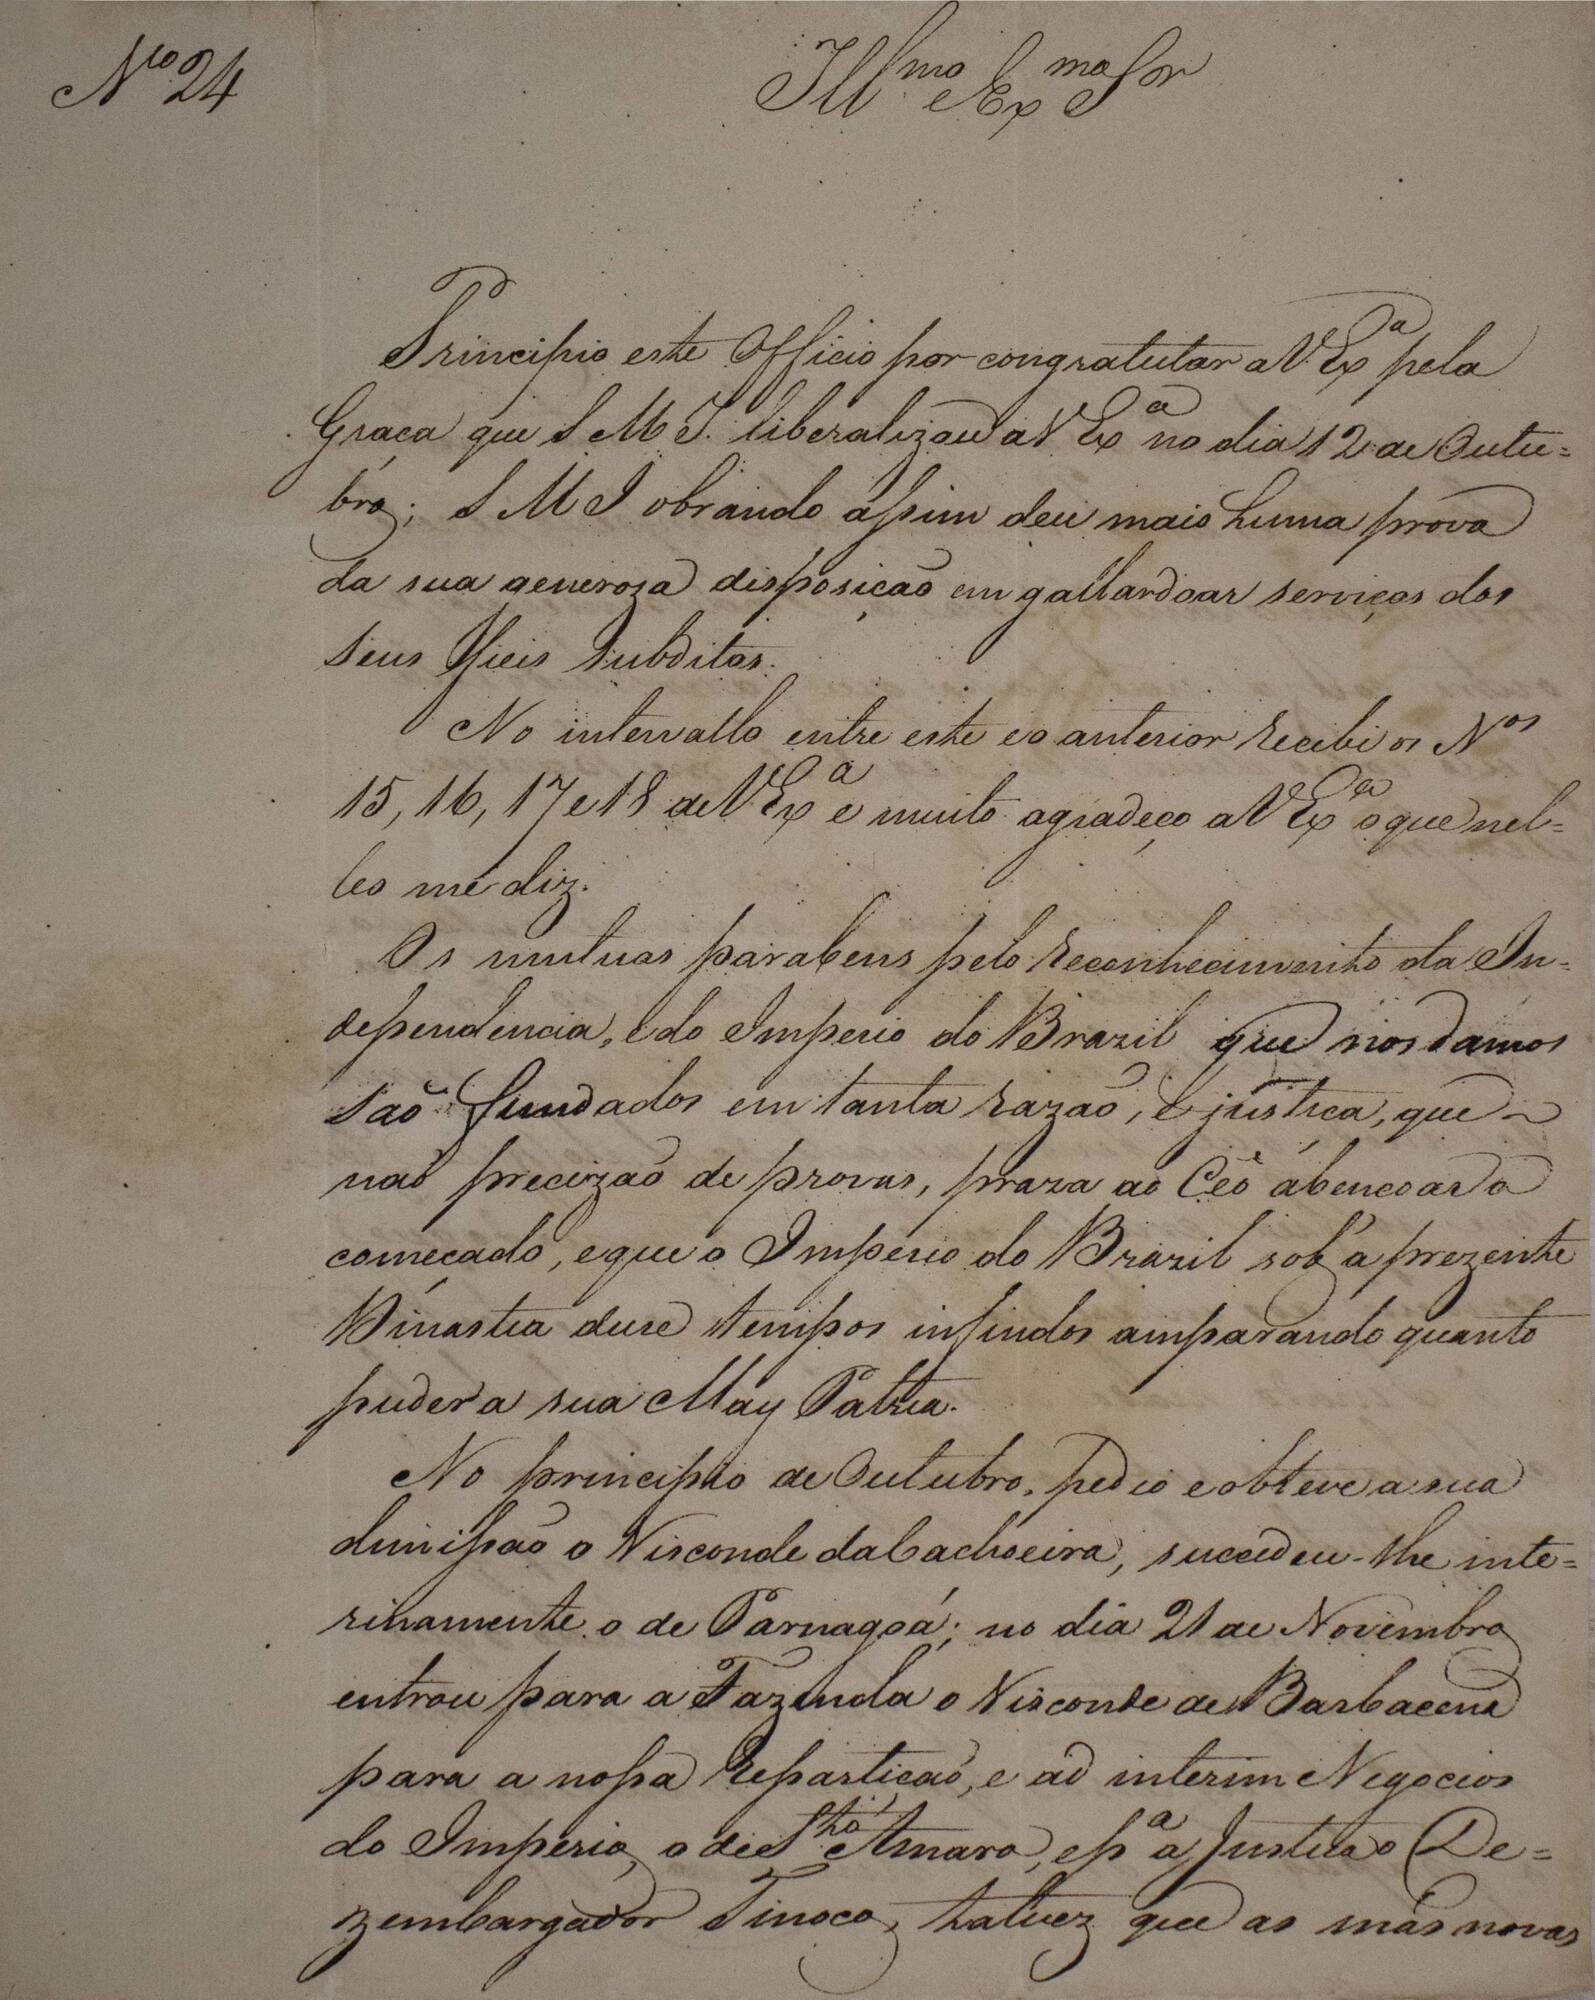 Nro 24
Illmo e Exmo Sor
Principio este Officio por congratular a V. Exa pela
Graça que S M I. liberalizou a V Exa no dia 12 de Outu=
bro; S M I obrando assim deu mais huma prova
da sua generoza disposição em gallardoar serviços dos
seus fieis subditos.
No intervallo entre este e o anterior recibi os Nos
15, 16, 17 e 18 de V. Exa e muito agradeço a V Exa o que nel=
les me diz.
Os mutuos parabens pelo reconhecimento da In=
dependencia, e do Imperio do Brazil que nos damos
são fundados em tanta razão, e justiça, que
não precizão de provas, praza ao Ceo abençoar o
começado, e que o Imperio do Brazil sob a prezente
Dinastia dure tempos infindos amparando quanto
puder a sua May Patria.
No principio de Outubro, pedio e obteve a sua
dimissão o Visconde da Cachoeira, succedeu-lhe inte=
rinamente o de Parnagoá; no dia 21 de Novembro
entrou para a Fazenda o Visconde de Barbacena
para a nossa repartição, e ad interim Negocios
do Imperio, o de Sto Amaro, e pa a Justiça o De=
zembargador Tinoco, talvez que as más novas